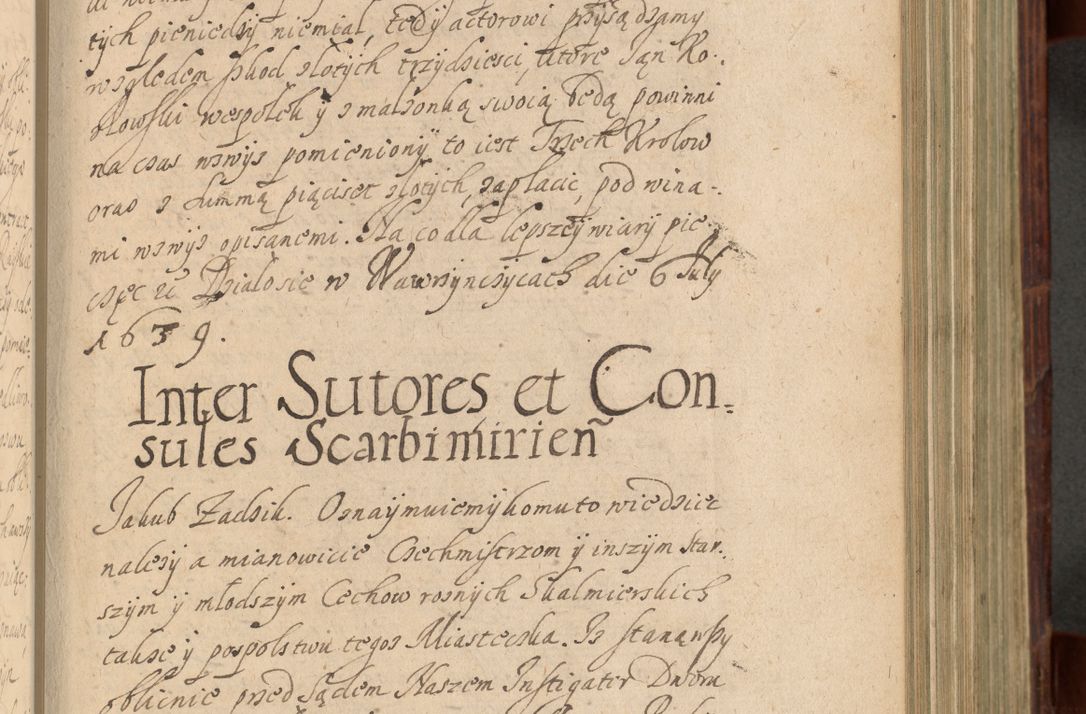 tych pieniedzy niemiał, tedy actorowi przysądzamy
względem szkod złotych trzydziesci, ktore Jan Ko-
złowski wespołek y z małzonką swoią będą powinni
na czas wzwyz pomieniony to iest Trzech Krolow
oraz z summą piąciset złotych, zapłacić, pod wina-
mi wzwyz opisanemi. Na co dla lepszey wiary pie-
częc etc Działosie w Wawrzynczycach die 6 July
1639.
Inter Sutores et Con-
sules Scarbimirien̄
Jakub Zadzik. Oznaymuiemy komu to wiedziec
nalezy a mianowicie Czechmistrzom y inszym star-
szym y młodszym Cechow roznych Skalmierskich
takze y pospolstwu tegoz Miasteczka. Iz stanąwszy
oblicznie przed Sądem Naszem Instigator Dworu